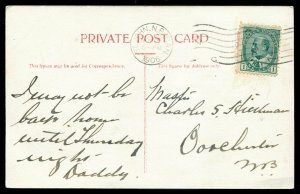 PRIVATE POST CARD
This space may be used for Correspondence.
This space for Address only.
N.B.
1906
I may not be
back home
until Thursday
night
Daddy.
Master
Charles S. Hickman
Dorchester
N.B.